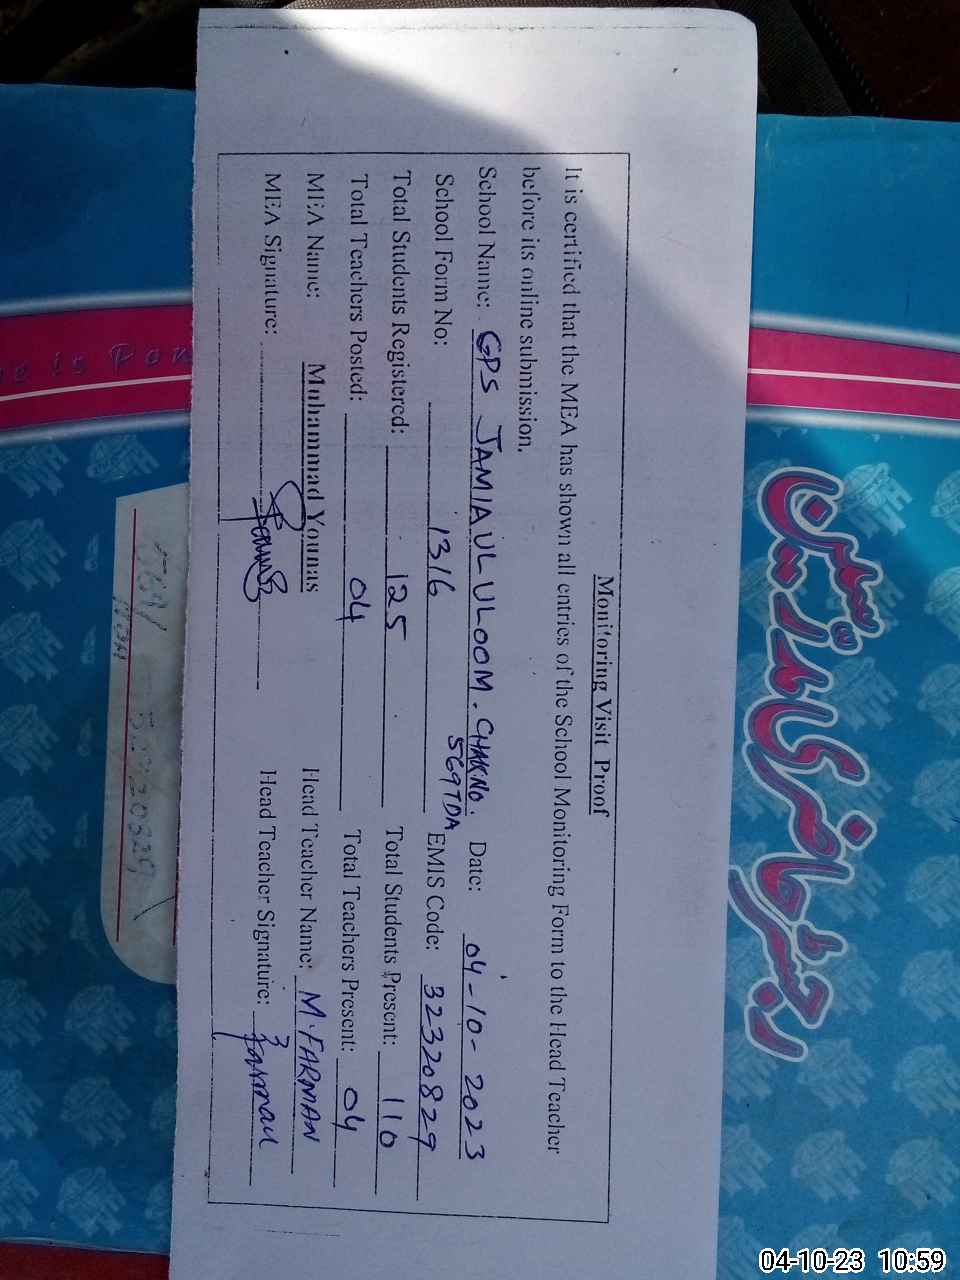 Monitoring Visit Proof
It is certified that the MEA has shown all entries of the School Monitoring Form to the Head Teacher
before its online submission.
School Name: GPS JAMIA UL ULOOM. CHAK NO. 569TDA Date: 04-10-2023
School Form No: 1316 EMIS Code: 32320829
Total Students Registered: 125 Total Students Present: 110
Total Teachers Posted: 04 Total Teachers Present: 04
MEA Name: Muhammad Younas Head Teacher Name: M. FARMAN
MEA Signature: Head Teacher Signature: Farman
رجسٹر حاضری مدرسین
32320829
04-10-23 10:59